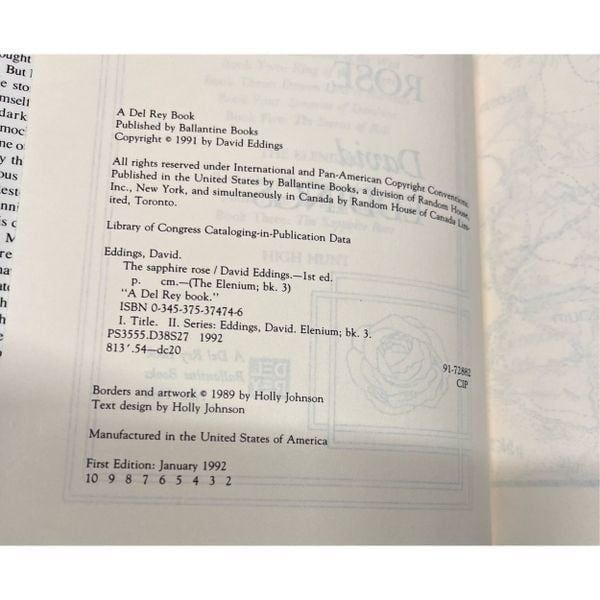 A Del Rey Book
Published by Ballantine Books
Copyright © 1991 by David Eddings
All rights reserved under International and Pan-American Copyright Conventions.
Published in the United States by Ballantine Books, a division of Random House,
Inc., New York, and simultaneously in Canada by Random House of Canada Lim-
ited, Toronto.
Library of Congress Cataloging-in-Publication Data
Eddings, David.
The sapphire rose / David Eddings.—1st ed.
p. cm.—(The Elenium; bk. 3)
"A Del Rey book."
ISBN 0-345-375-37474-6
I. Title. II. Series: Eddings, David. Elenium; bk. 3.
PS3555.D38S27 1992
813'.54—dc20
91-72882
CIP
Borders and artwork © 1989 by Holly Johnson
Text design by Holly Johnson
Manufactured in the United States of America
First Edition: January 1992
10 9 8 7 6 5 4 3 2